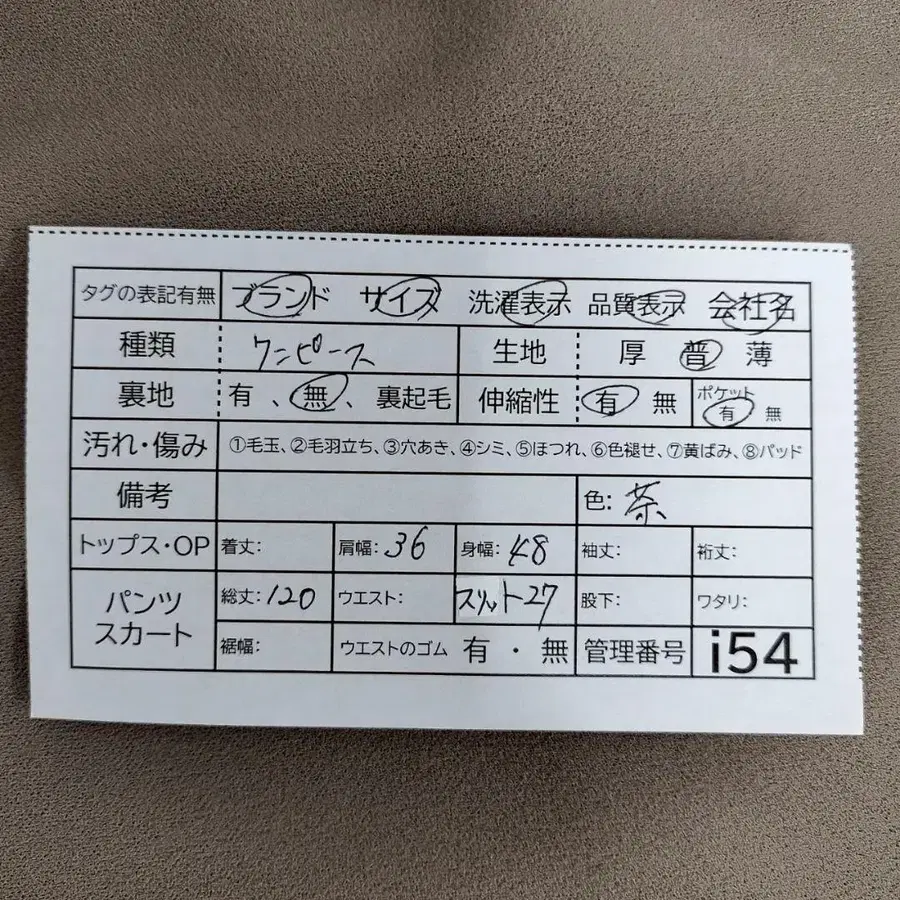 タグの表記有無 ブランド サイズ 洗濯表示 品質表示 会社名
種類 ワンピース 生地 厚 普 薄
裏地 有 、無、 裏起毛 伸縮性 有 無 ポケット 有 無
汚れ・傷み ①毛玉、②毛羽立ち、③穴あき、④シミ、⑤ほつれ、⑥色褪せ、⑦黄ばみ、⑧パッド
備考 色: 茶
トップス・OP 着丈: 肩幅: 36 身幅: 48 袖丈: 裄丈:
パンツ スカート 総丈: 120 ウエスト: スリット27 股下: ワタリ:
裾幅: ウエストのゴム 有 ・ 無 管理番号 i54